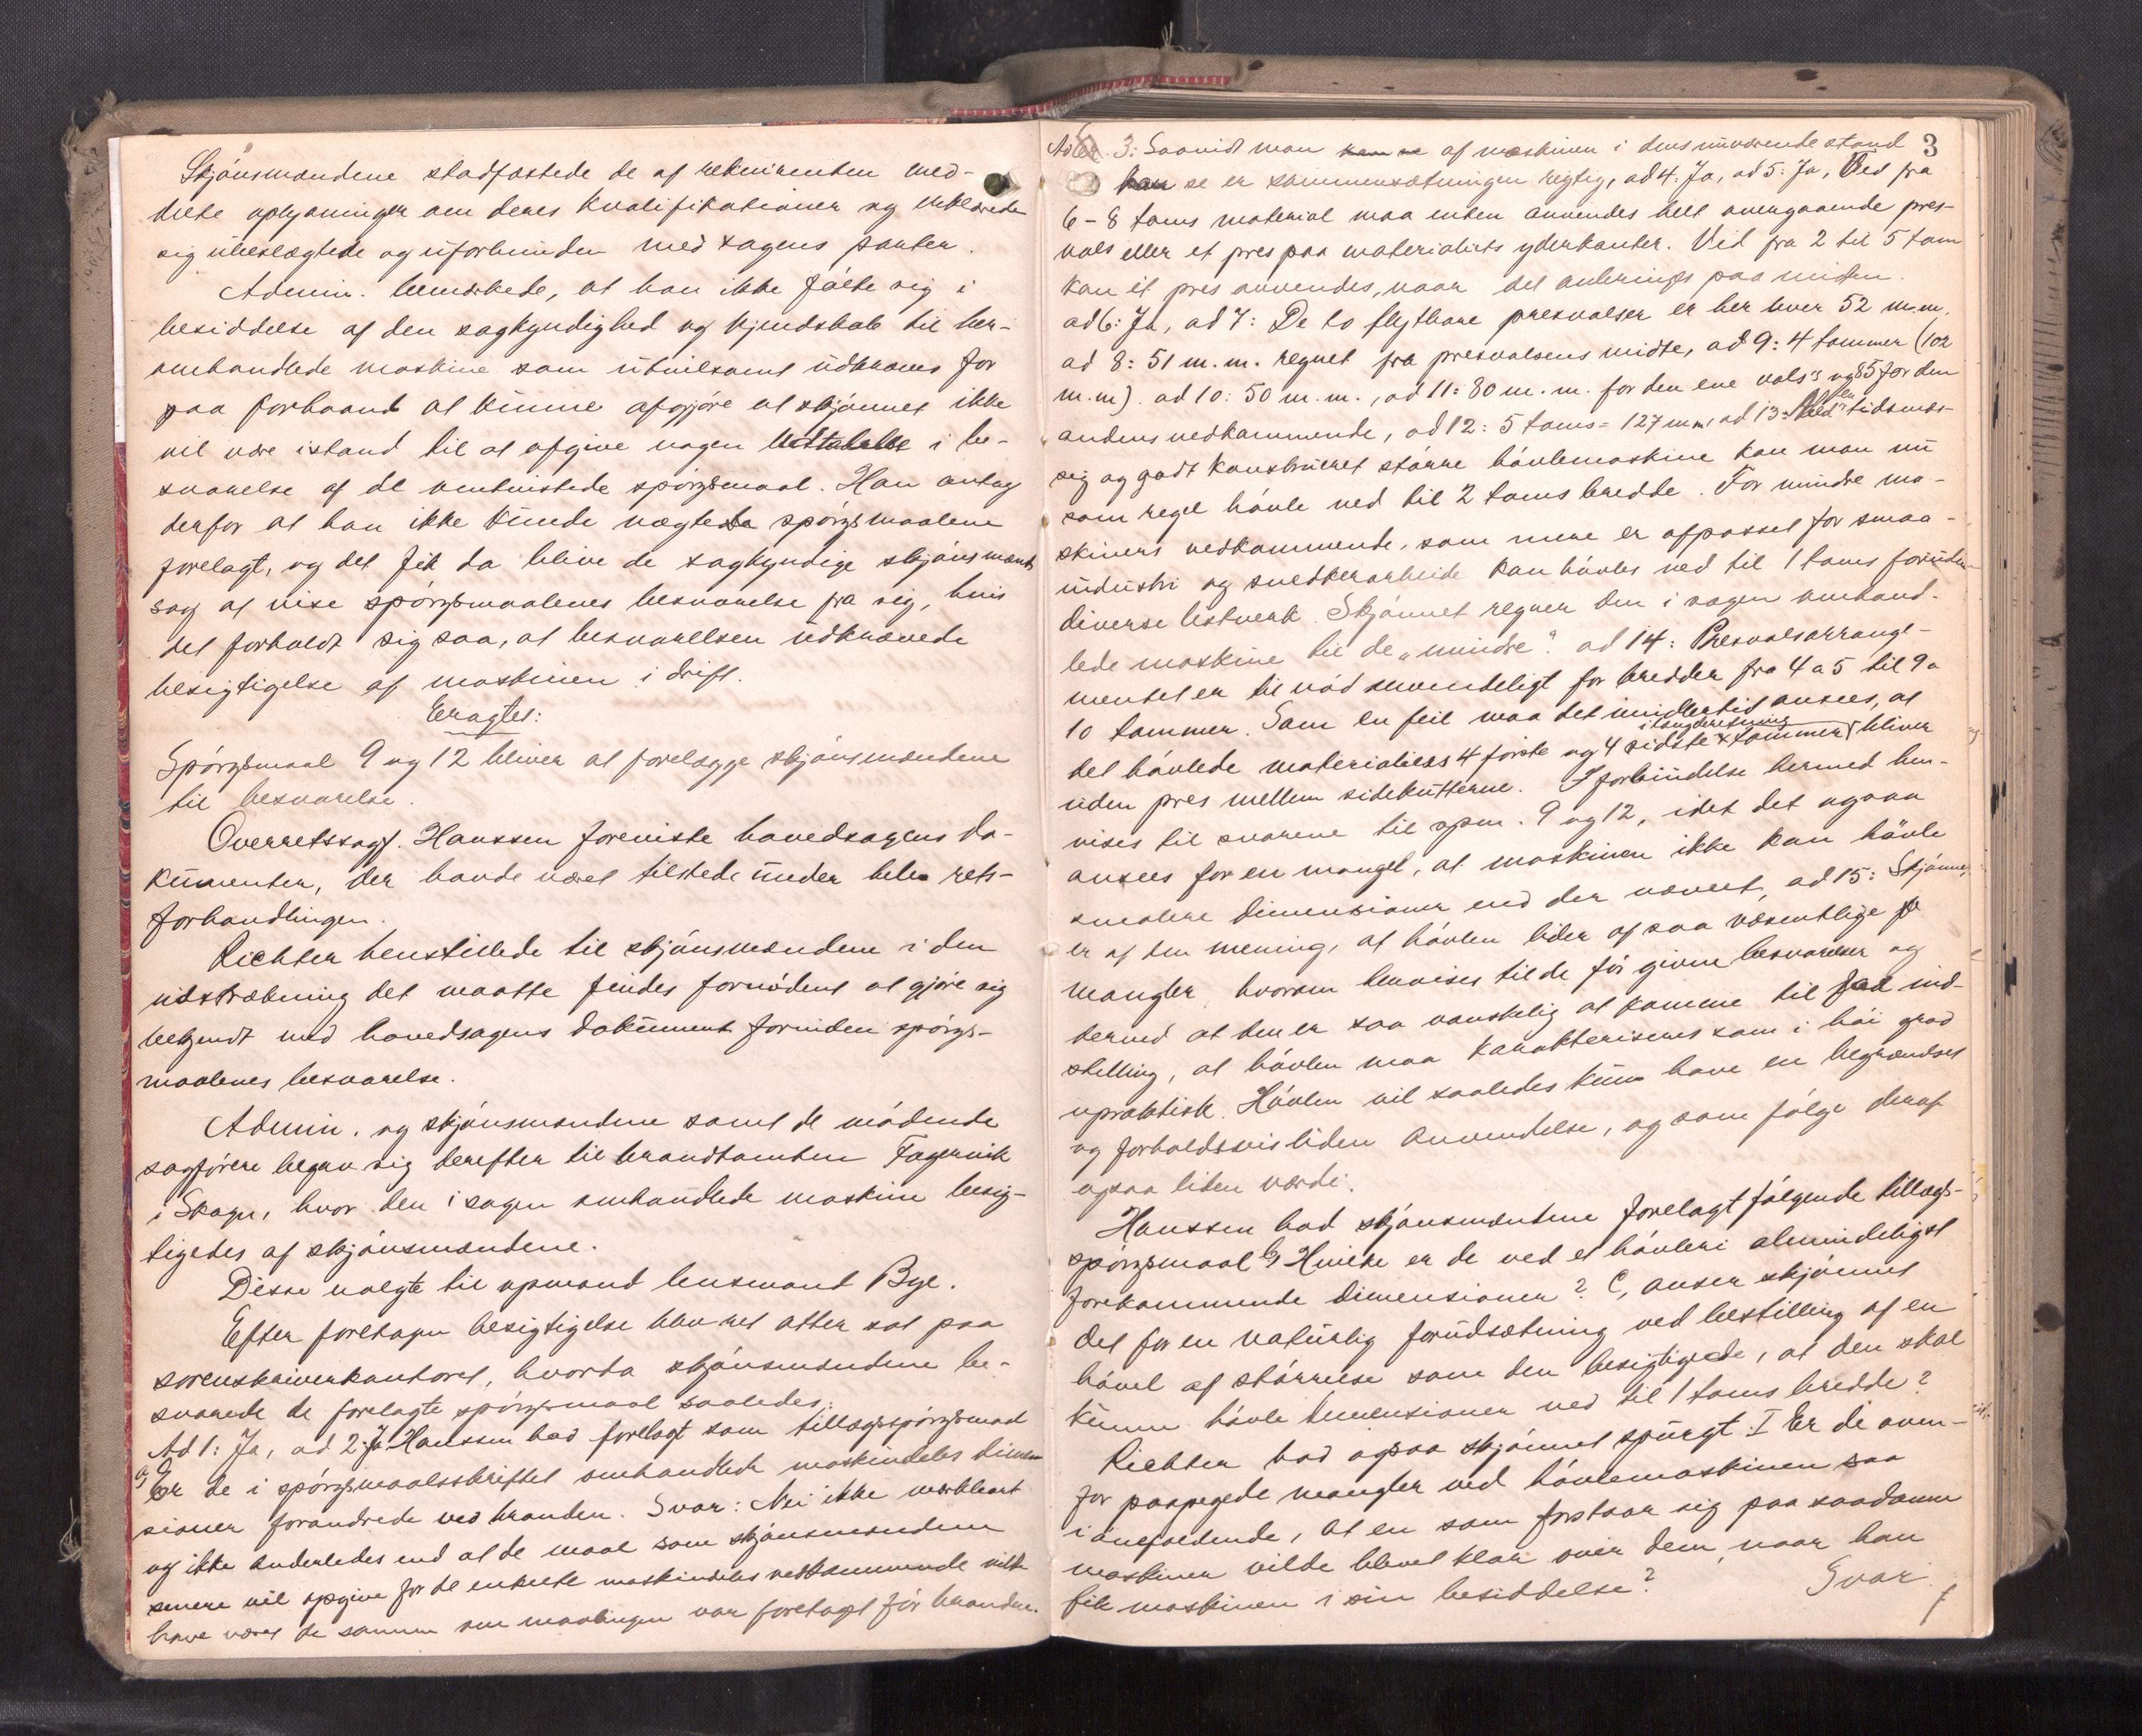 Skjønsmændene stadfæstede de af rekvirenten med-
delte oplysninger om deres kvalifikationer og erklærede
sig ubeslægtede og uforbunden med sagens parter.
Admin. bemærkede, at han ikke følte sig i
besiddelse af den sagkyndighed og kjendskab til her-
omhandlede maskine som utvilsomt udkræves for
paa forhaand at kunne afgjøre at skjønnet ikke
vil være istand til at afgive nogen udtalelse i be-
svarelse af de omtvistede spørgsmaal. Han antog
derfor at han ikke kunde nægte spørgsmaalene
forelagt, og det fik da blive de sagkyndige skjønsmænds
sag at vise spørgsmaalenes besvarelse fra sig, hvis
det forholdt sig saa, at besvarelsen udkrævede
besigtigelse af maskinen i drift.
Eragtet:
Spørgsmaal 9 og 12 bliver at forelægge skjønsmændene
til besvarelse.
Overretssagf. Hanssen foreviste hovedsagens do-
kumenter, der havde været tilstede under hele rets-
forhandlingen.
Richter henstillede til skjønsmændene i den
udstrækning det maatte findes fornødent at gjøre sig
bekjendt med hovedsagens dokument forinden spørgs-
maalenes besvarelse.
Admin. og skjønsmændene samt de mødende
sagførere begav sig derefter til brandtomten Fagervik
i Skogn, hvor den i sagen omhandlede maskine besig-
tigedes af skjønsmændene.
Disse valgte til opmand lensmand Bye.
Efter foretagen besigtigelse blev ret atter sat paa
sorenskriverkontoret, hvorda skjønsmændene be-
svarede de forelagte spørgsmaal saaledes:
Ad 1: Ja, ad 2: Ja Hanssen had forelagt som tillægsspørgsmaal
a, Er de i spørgsmaalsskriftet omhandlede maskindeles dimen-
sioner forandrede ved branden. Svar: Nei ikke merkbart
og ikke anderledes end at de maal som skjønsmændene
senere vil opgive for de enkelte maskindeles vedkommende vilde
have været de samme om maalingen var foretaget før branden.
3
Ad 3: Saavidt man kan se af maskinen i dens nuværende stand
kan se er sammensætningen regtig, ad 4: Ja, ad 5: Ja, Ved fra
6-8 toms material maa enten anvendes helt overgaaende pres-
vals eller et pres paa materialets yderkanter. Ved fra 2 til 5 tom
kan ét pres anvendes, naar det anbringes paa midten.
ad 6: Ja, ad 7: De to flytbare presvalser er her hver 52 m.m.
ad 8: 51 m.m. regnet fra presvalsens midte, ad 9: 4 tommer (102
m.m). ad 10: 50 m.m., ad 11: 80 m.m. for den ene vals's og 85 for den
andens vedkommende, ad 12: 5 toms = 127 mm, ad 13: Ved en tidsmæs-
sig og godt konstrueret større høvlemaskine kan man nu
som regel høvle ned til 2 toms bredde. For mindre ma-
skiners vedkommende, som mere er afpasset for smaa-
industri og snedkerarbeide kan høvles ned til 1 toms foruden
diverse listverk. Skjønnet regner den i sagen omhand-
lede maskine til de "mindre". ad 14: Presvalsarrange-
mentet er til nød anvendeligt for bredder fra 4 a 5 til 9 a
10 tommer. Som en feil maa det imidlertid ansees, at
det høvlede materialies 4 første og 4 sidste tommer i længderetning bliver
uden pres mellem sidekutterne. I forbindelse hermed hen-
vises til svarene til spm. 9 og 12, idet det ogsaa
ansees for en mangel, at maskinen ikke kan høvle
smalere dimensioner end der nævnt, ad 15: Skjønnet
er af den mening, at høvlen lider af saa væsentlige
mangler, hvorom henvises til de før givne besvarelser og
derved at den er saa vanskelig at komme til for ind-
stilling, at høvlen maa karakteriseres som i høi grad
upraktisk. Høvlen vil saaledes kun have en begrændset
og forholdsvis liden anvendelse, og som følge deraf
ogsaa liden værdi.
Hanssen had skjønsmændene forelagt følgende tillægs-
spørgsmaal b, Hvilke er de ved et høvleri almindeligst
forekommende dimensioner? c, anser skjønnet
det for en naturlig forudsætning ved bestilling af en
høvel af størrelse som den besigtigede, at den skal
kunne høvle dimensioner ned til 1 toms bredde?
Richter had ogsaa skjønnet spurgt. I Er de oven-
for paapegede mangler ved høvlemaskinen saa
iøinefaldende, at en som forstaar sig paa saadanne
maskiner vilde blevet klar over dem, naar han
fik maskinen i sin besiddelse? Svar